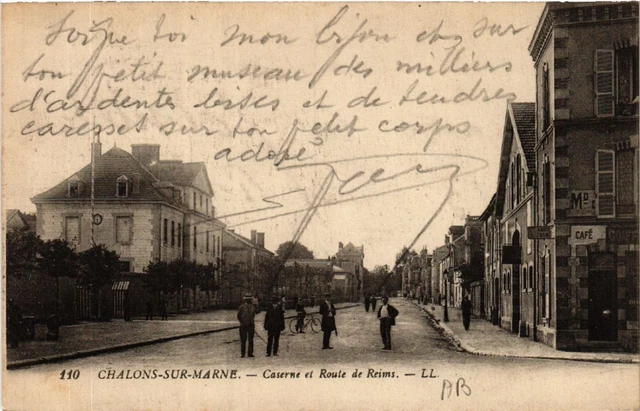 Soigne toi mon bijou et sur
ton petit museau des milliers
d'ardentes bises et de tendres
caresses sur ton petit corps
adoré
MD
CAFÉ
110 CHALONS-SUR-MARNE. — Caserne et Route de Reims. — LL.
AB